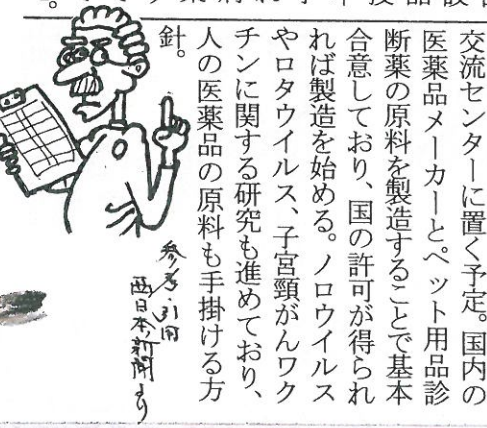 交流センターに置く予定。国内の
医薬品メーカーとペット用品診
断薬の原料を製造することで基本
合意しており、国の許可が得られ
れば製造を始める。ノロウイルス
やロタウイルス、子宮頸がんワク
チンに関する研究も進めており、
人の医薬品の原料も手掛ける方
針。
参考・引用
西日本新聞より